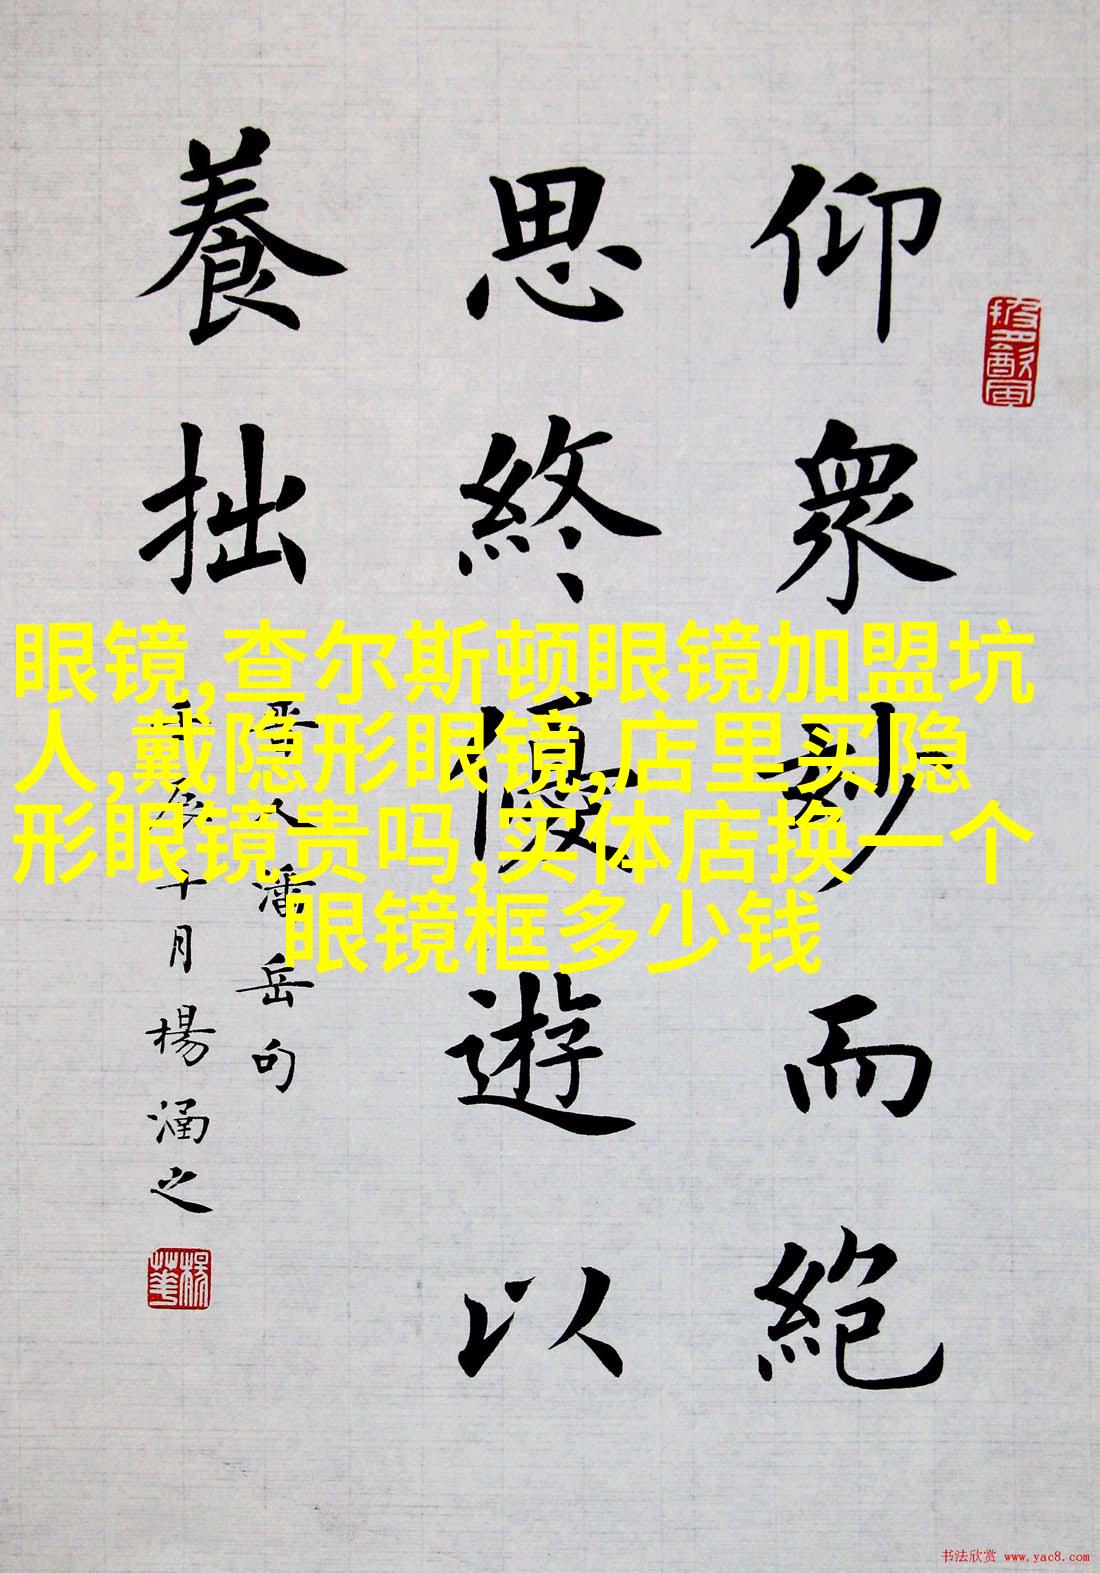 仰衆妙而絕
思終優遊以
養拙
晋人潘岳句
十月楊涵之
眼镜,查尔斯顿眼镜加盟坑
人,戴隐形眼镜,店里买隐
形眼镜贵吗,实体店换一个
眼镜框多少钱
书法欣赏 www.yac8.com